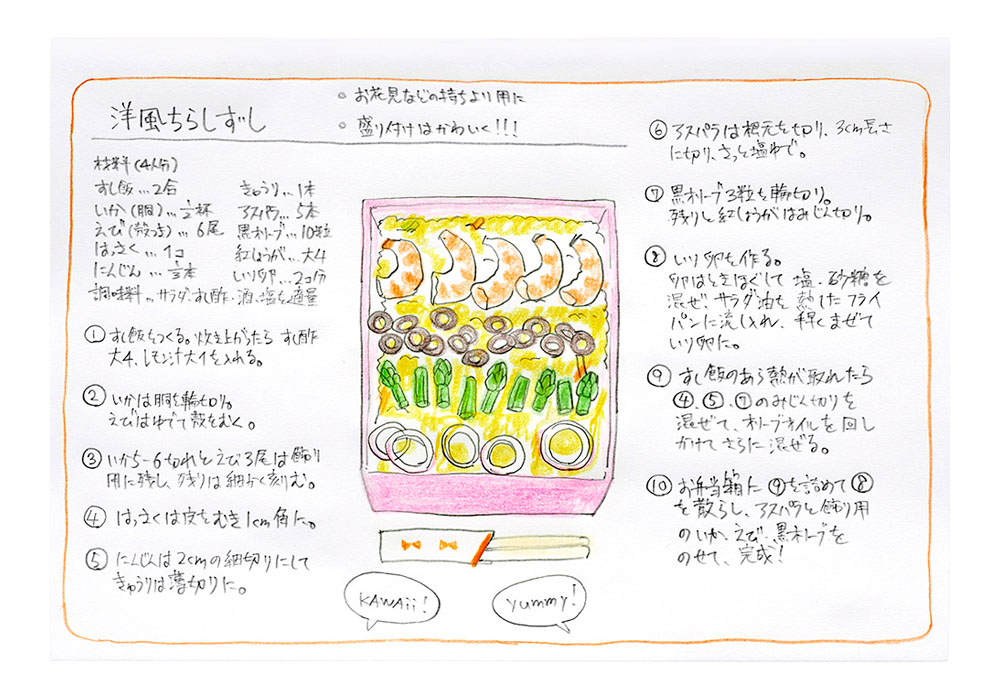 洋風ちらしずし
◦ お花見などの持ちより用に
◦ 盛り付けはかわいく!!!
材料(4人分)
すし飯…2合
いか(胴)…1/2杯
えび(殻つき)…6尾
はっさく…1コ
にんじん…1/2本
きゅうり…1本
アスパラ…5本
黒オリーブ…10粒
紅しょうが…大4
いり卵…2コ分
調味料…サラダ・すし酢・酒・塩を適量
① すし飯をつくる。炊き上がたら すし酢
大4、レモン汁大1を入れる。
② いかは胴を輪切り。
えびはゆでて殻をむく。
③ いか5-6切れとえび3尾は飾り
用に残し、残りは細かく刻む。
④ はっさくは皮をむき1cm角に。
⑤ にんじんは2cmの細切りにして
きゅうりは薄切りに。
⑥ アスパラは根元を切り、3cm長さ
に切り、さっと塩ゆで。
⑦ 黒オリーブ3粒を輪切り。
残りと紅しょうがはみじん切り。
⑧ いり卵を作る。
卵はときほぐして 塩・砂糖を
混ぜ、サラダ油を 熱したフライ
パンに流し入れ、手早くまぜて
いり卵に。
⑨ すし飯のあら熱が取れたら
④、⑤、⑦のみじん切りを
混ぜて、オリーブオイルを回し
かけてさらに混ぜる。
⑩ お弁当箱に⑨を詰めて⑧
を散らし、アスパラと飾り用
のいか、えび、黒オリーブを
のせて、完成!
KAWAii!
yummy!